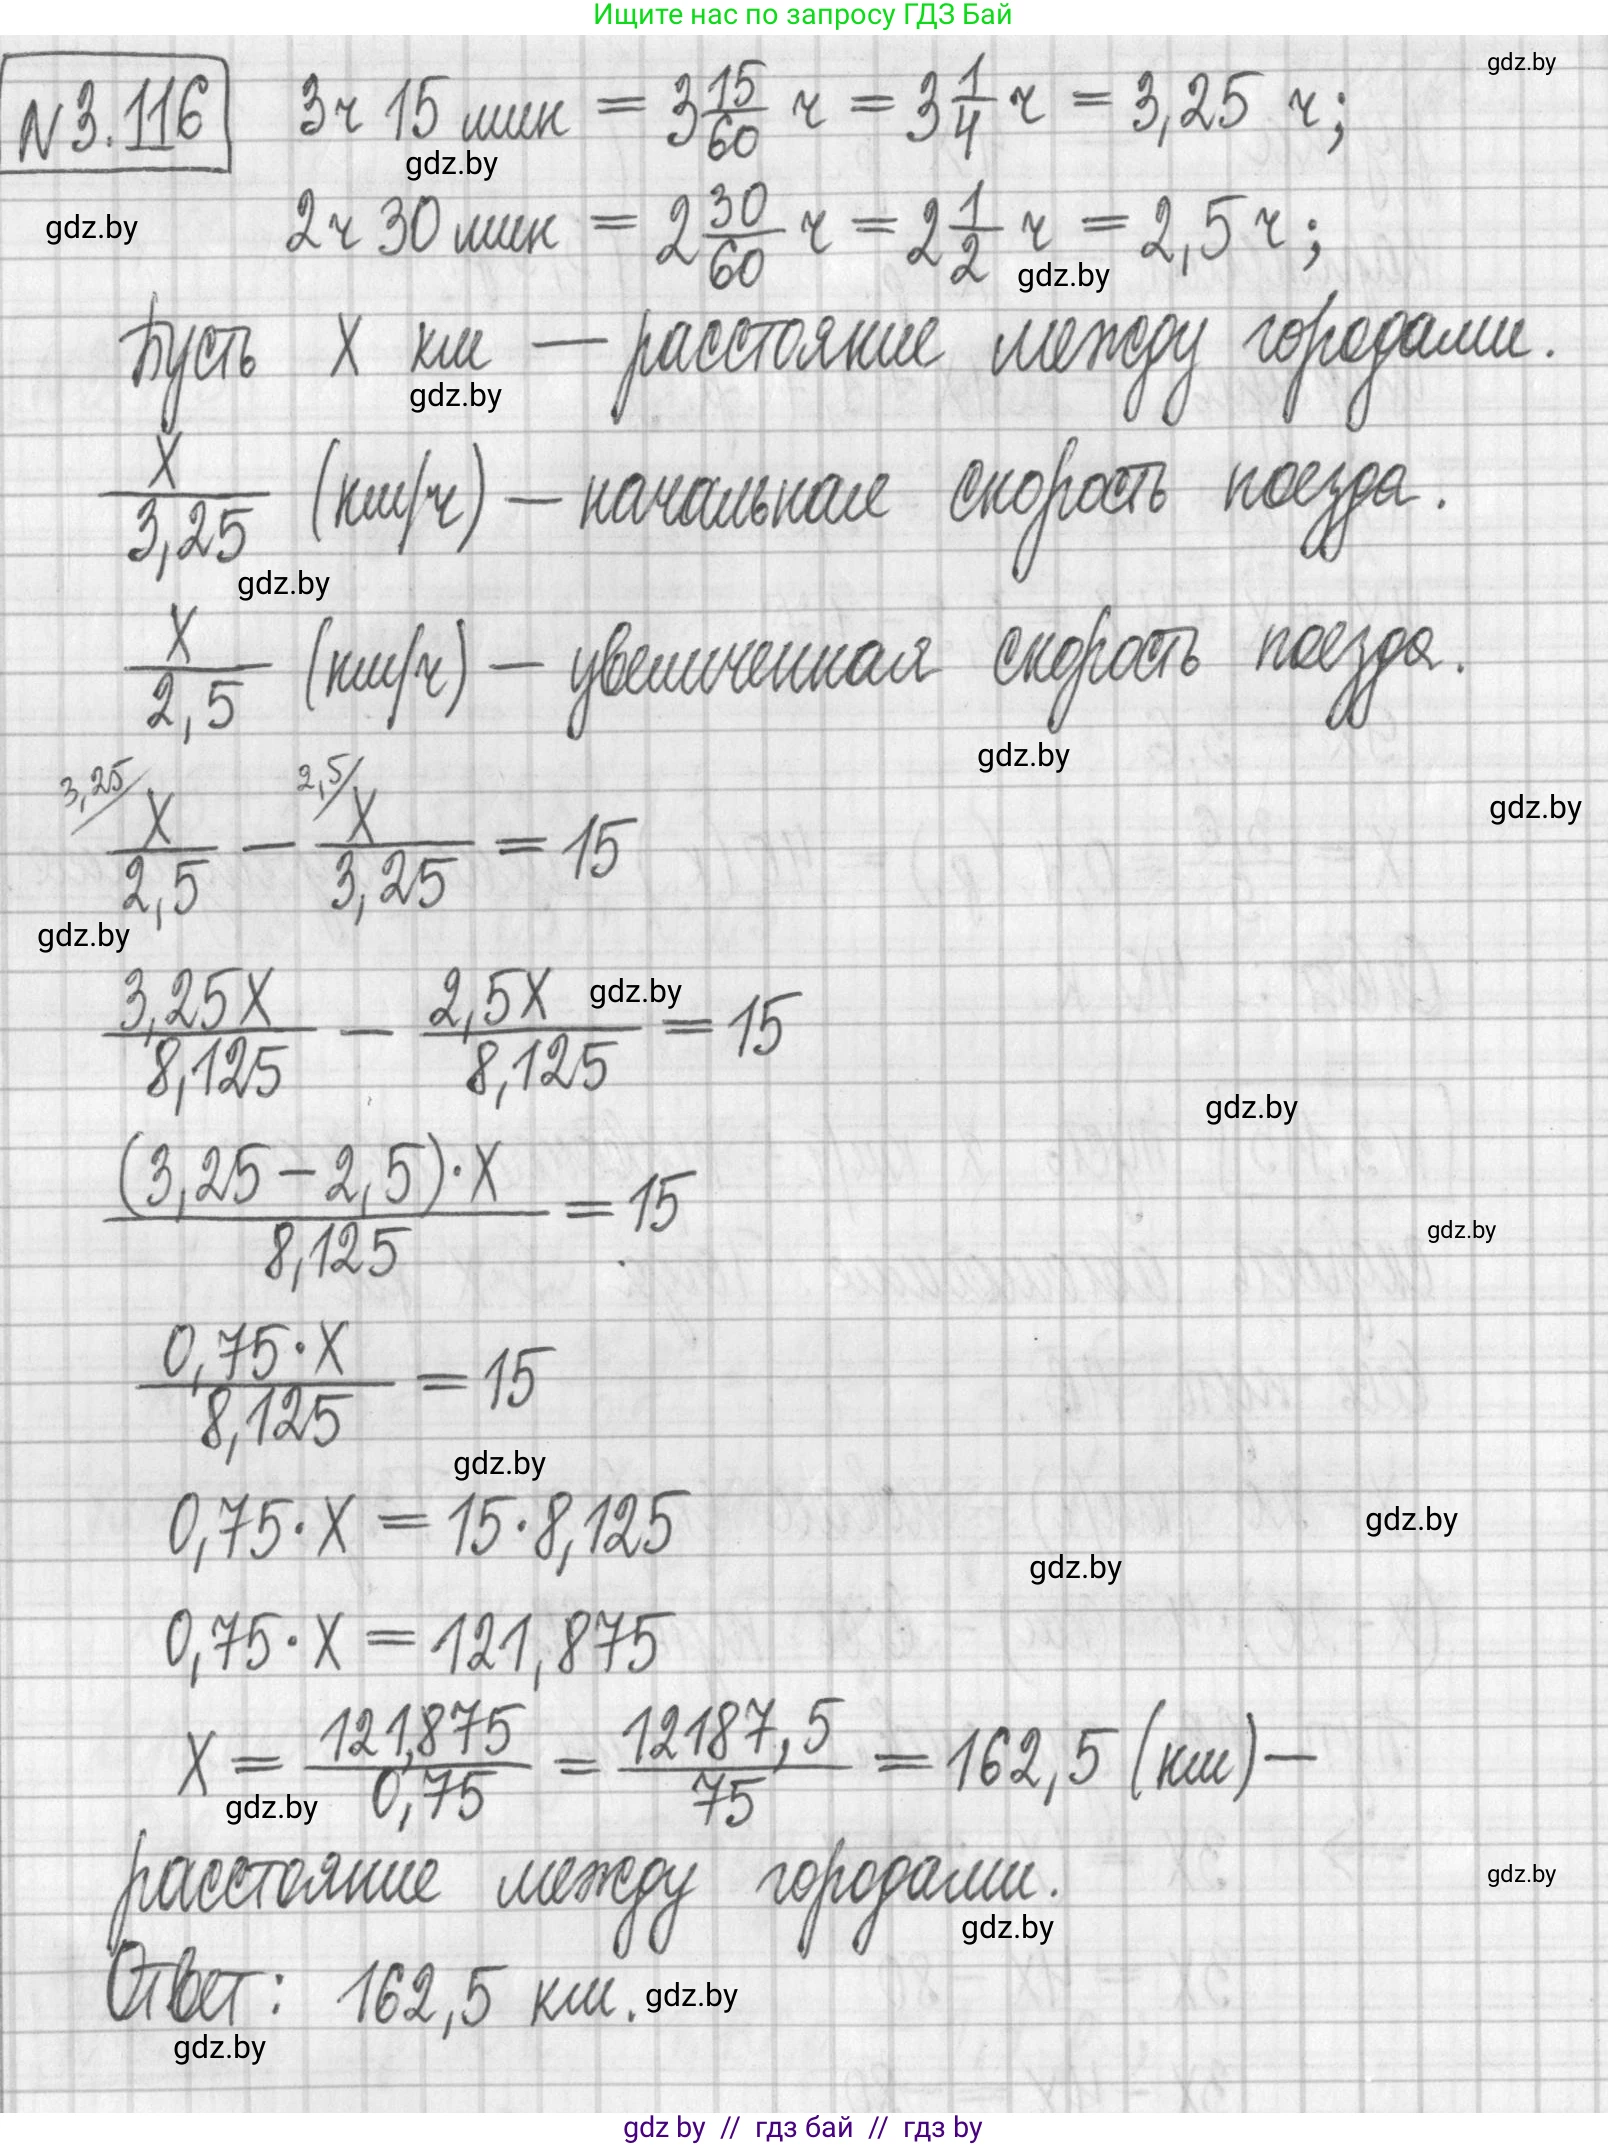 Ищите нас по запросу ГДЗ Бай
gdz.by
N 3.116
3ч 15 мин = 3 15/60 ч = 3 1/4 ч = 3,25 ч;
gdz.by
gdz.by
2ч 30 мин = 2 30/60 ч = 2 1/2 ч = 2,5 ч;
gdz.by
Пусть x км — расстояние между городами.
gdz.by
x/3,25 (км/ч) — начальная скорость поезда.
gdz.by
x/2,5 (км/ч) — увеличенная скорость поезда.
gdz.by
gdz.by
3,25/ x/2,5 − 2,5/ x/3,25 = 15
gdz.by
3,25x/8,125 − 2,5x/8,125 = 15
gdz.by
gdz.by
(3,25 − 2,5)·x/8,125 = 15
gdz.by
0,75·x/8,125 = 15
gdz.by
0,75·x = 15·8,125
gdz.by
gdz.by
0,75·x = 121,875
x = 121,875/0,75 = 12187,5/75 = 162,5 (км) —
gdz.by
расстояние между городами.
gdz.by
gdz.by
Ответ: 162,5 км.
gdz.by
gdz.by
gdz by // гдз бай // гдз by